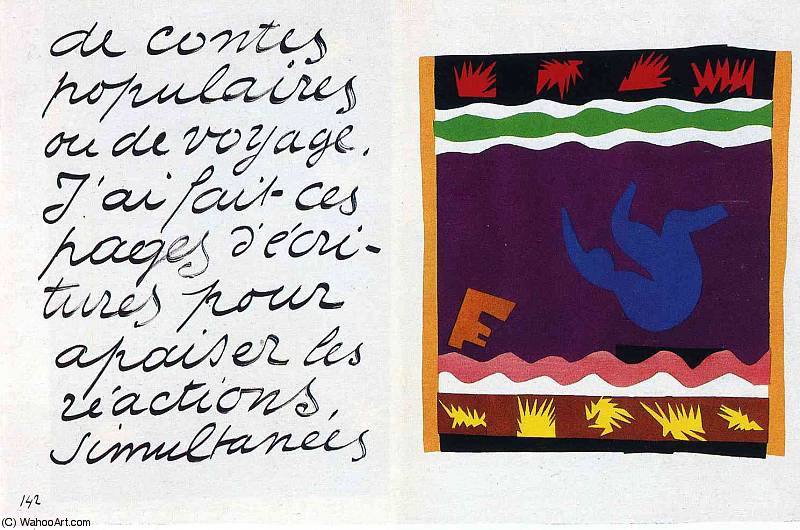 de contes
populaires
ou de voyage.
J'ai fait ces
pages d'écri-
tures pour
apaiser les
réactions
simultanées
142
(C) WahooArt.com